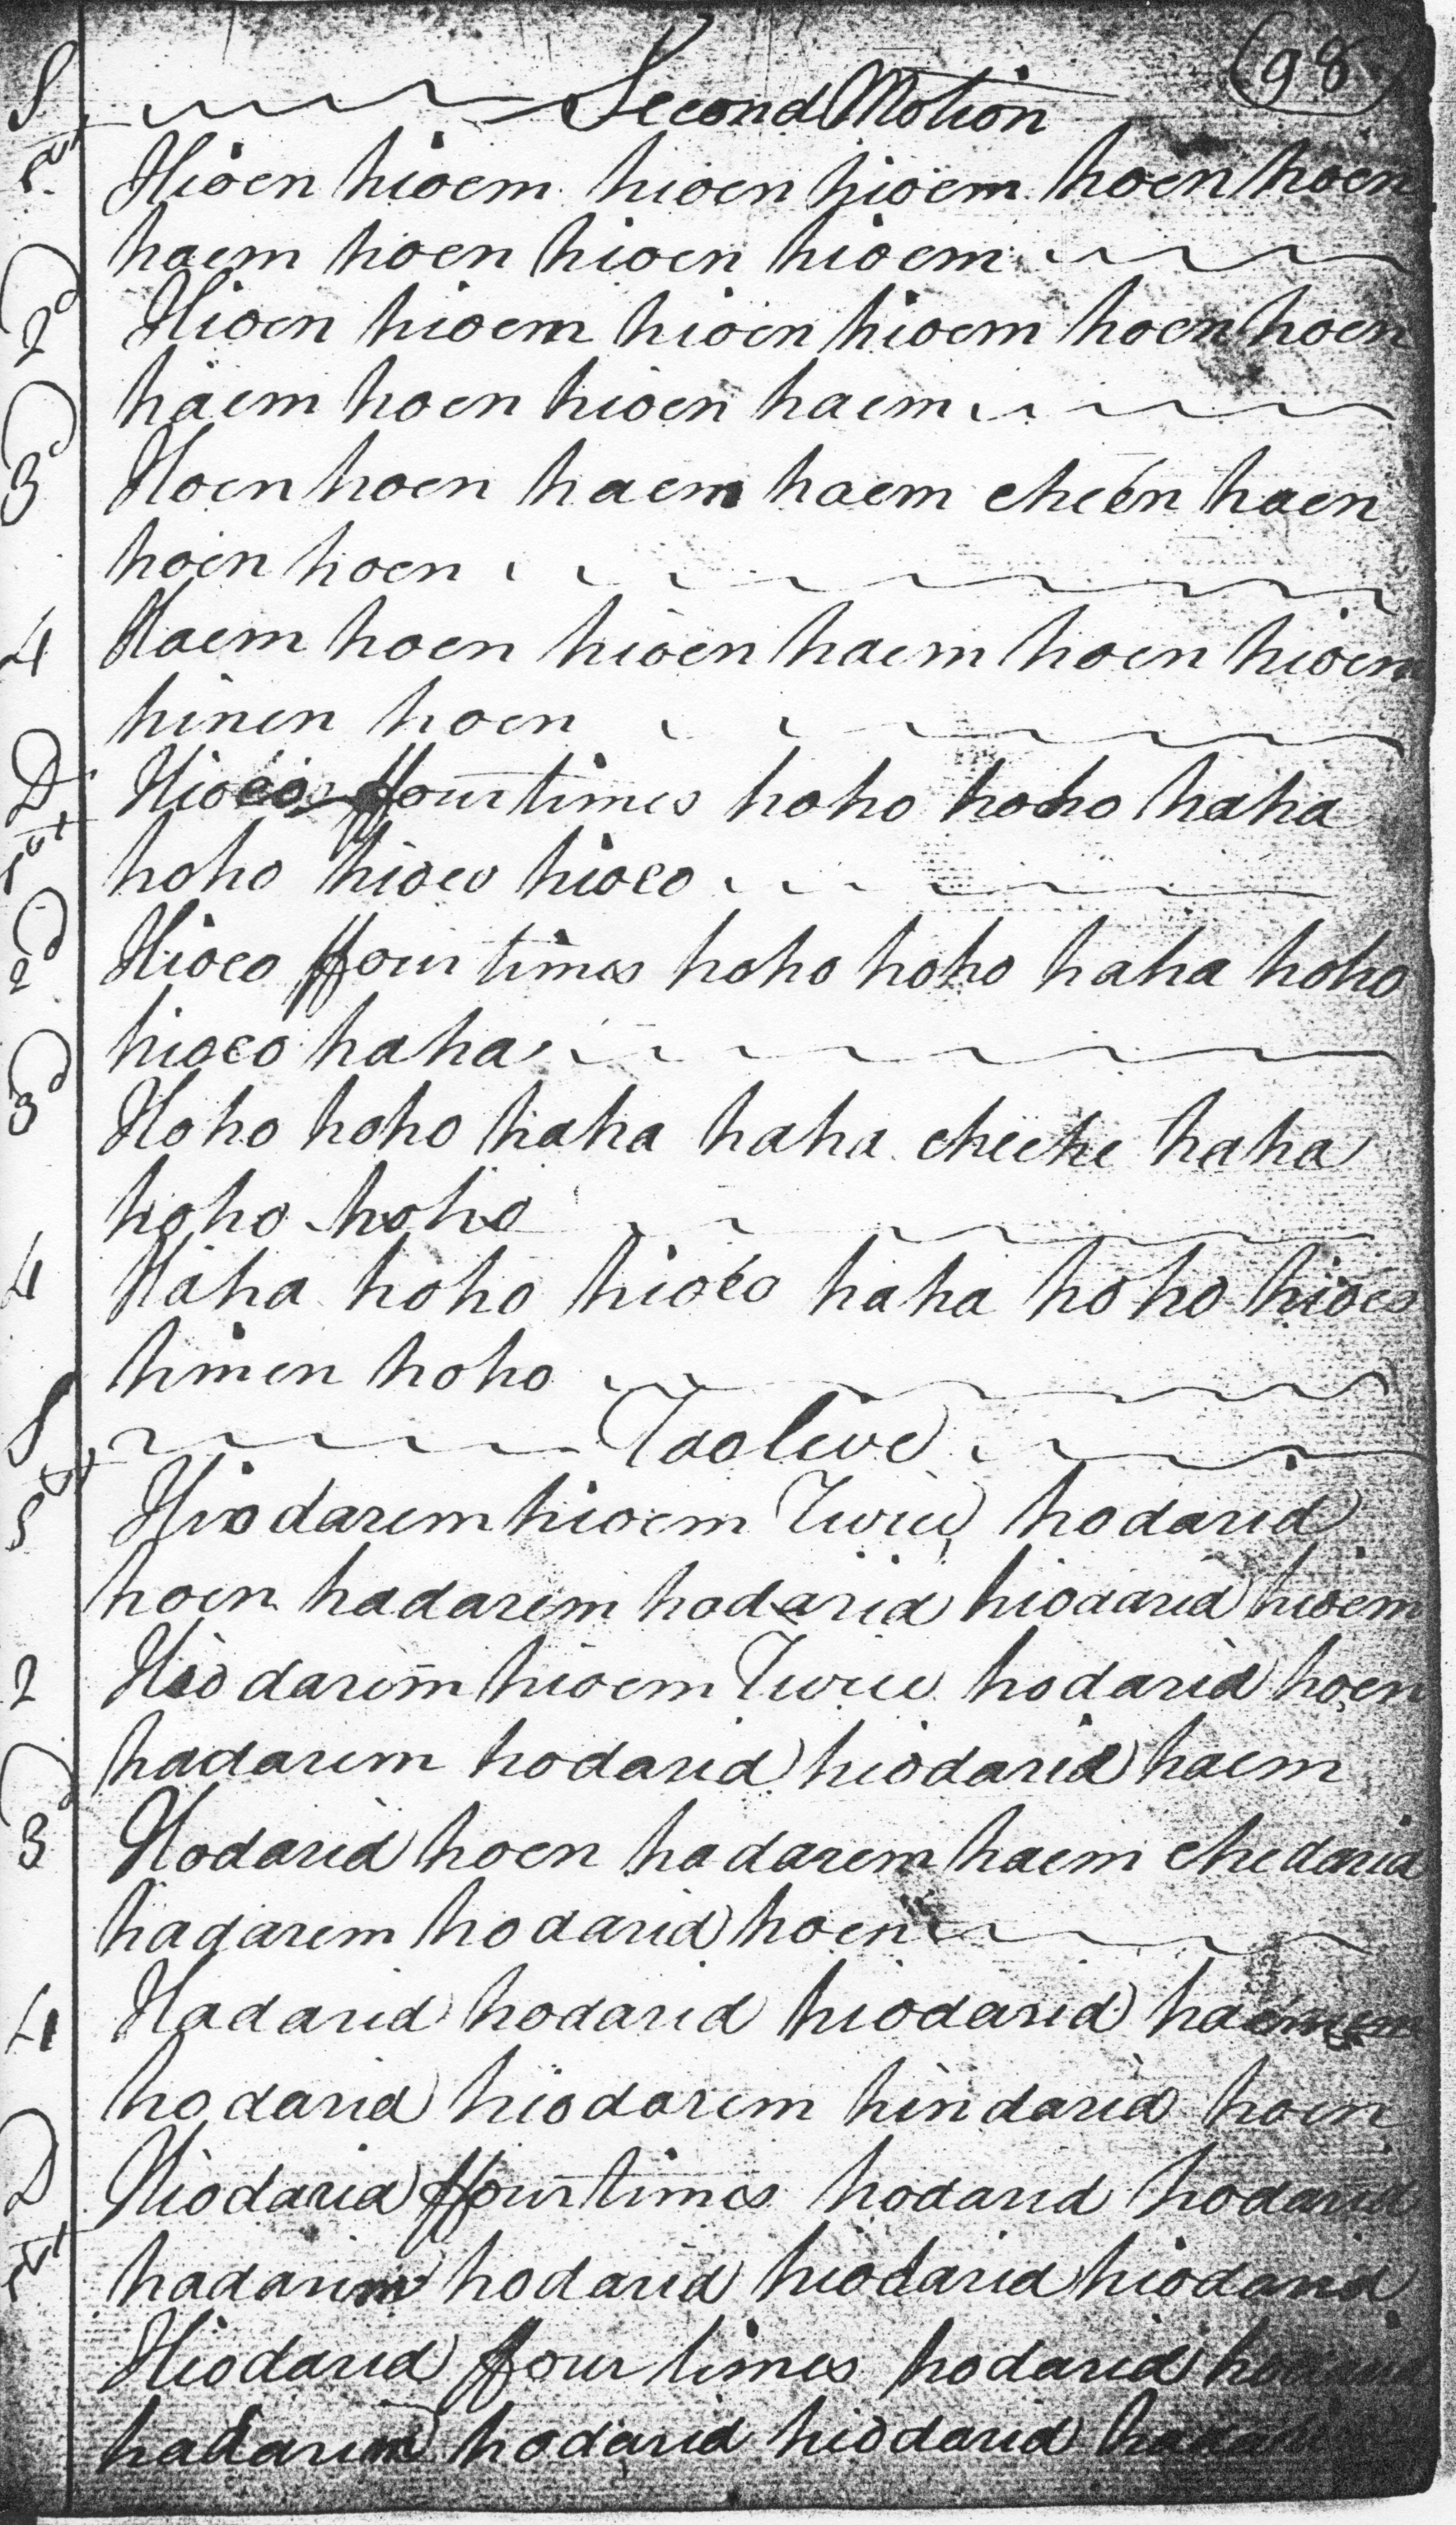 (98)
S Second Motion
1st Hioen hioem hioen hioem hoen hoen
haem hoen hioen hioem
2d Hioen hioem hioen hioem hoen hoen
haem hoen hioen haem
3d Hoen hoen haem haem cheen haen
hoen hoen
4 Haem hoen hioen haem hoen hioem
hinen hoen
D Hioeo ffour times hoho hoho haha
1st hoho hioeo hioeo
2d Hioeo ffour times hoho hoho haha hoho
hioeo haha
3d Hoho hoho haha haha cheche haha
hoho hoho
4 Haha hoho hioeo haha hoho hioeo
hinen hoho
S Taolive
1st Hiodarem hioem Twice hodarid
hoen hadarem hodarid hiodarid hioem
2 Hiodarem hioem Twice hodarid hoen
hadarem hodarid hiodarid haem
3d Hodarid hoen hadarem haem chedarid
hadarem hodarid hoen
4 Hadarid hodarid hiodarid
hodarid hiodarem hindarid hoen
D Hiodarid ffour times hodarid hodarid
1st hadarim hodarid hiodarid hiodarid
Hiodarid ffour times hodarid
hadarim hodarid hiodarid